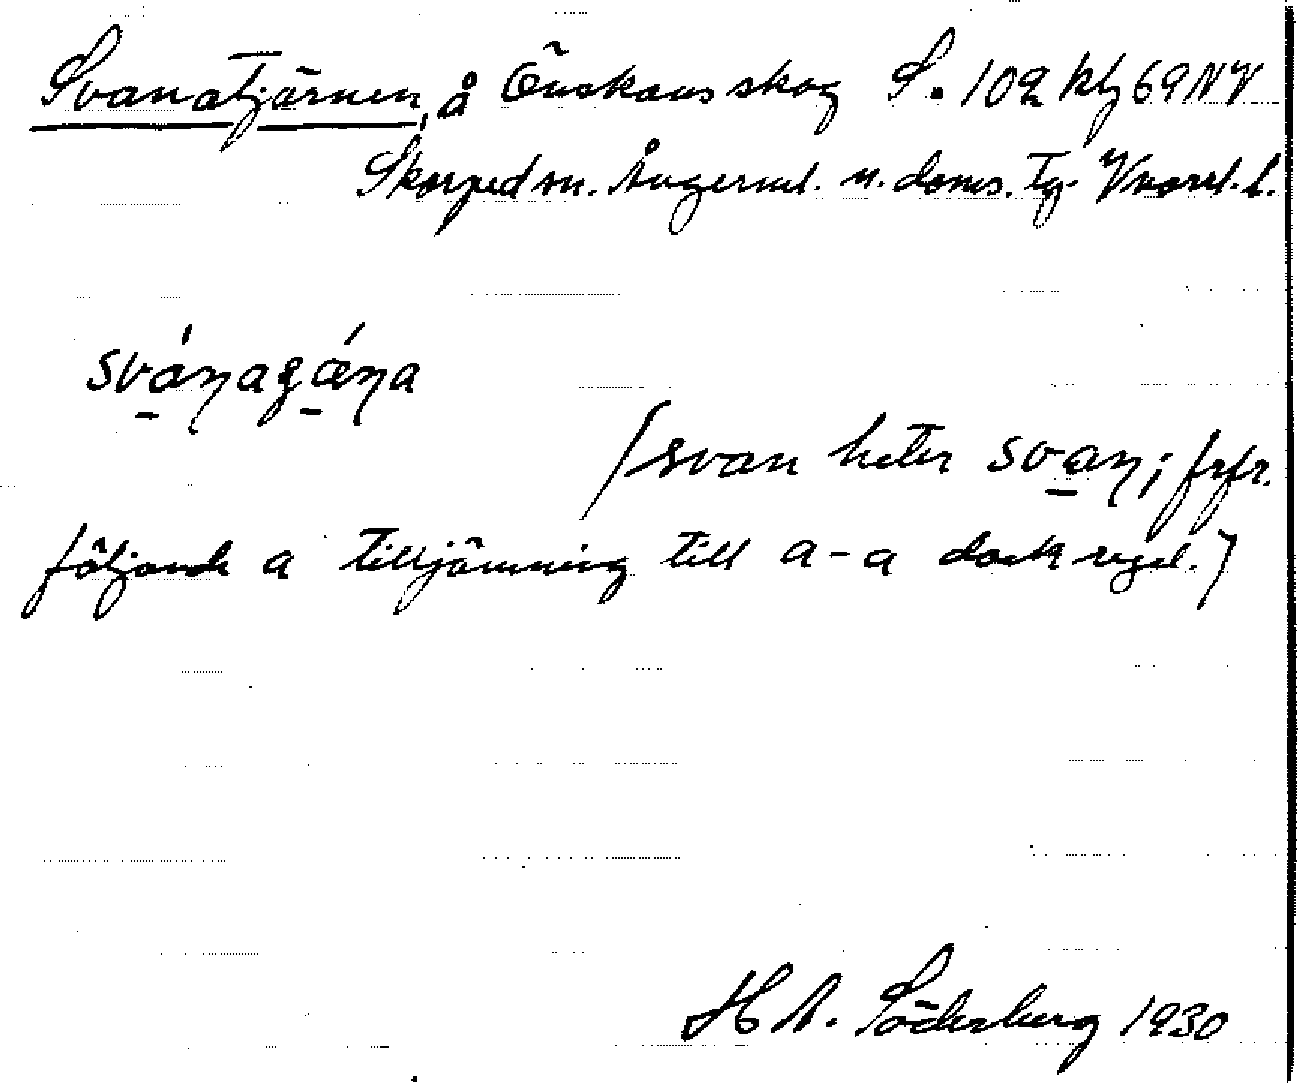 Svanatjärnen, å Önskans skog S. 102 kbl 69 NV
Skorped sn. Ångerml. n. doms. Tg. Vnorrl. l.
svánagǽna
(svan heter svan; frfr.
följande a tilljämning till a-a dock regel.)
H A. Söderberg 1930